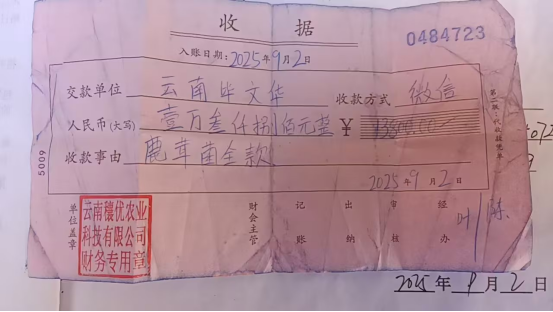 收据
0484723
入账日期：2025年9月2日
交款单位 云南毕文华 收款方式 微信
人民币（大写） 壹万叁仟捌佰元整 ¥ 13800.00
收款事由 鹿茸菌全款
2025年9月2日
5009
单位盖章
云南穰优农业
科技有限公司
财务专用章
财会主管 记账 出纳 审核 经办 叶 陈
2025年9月2日